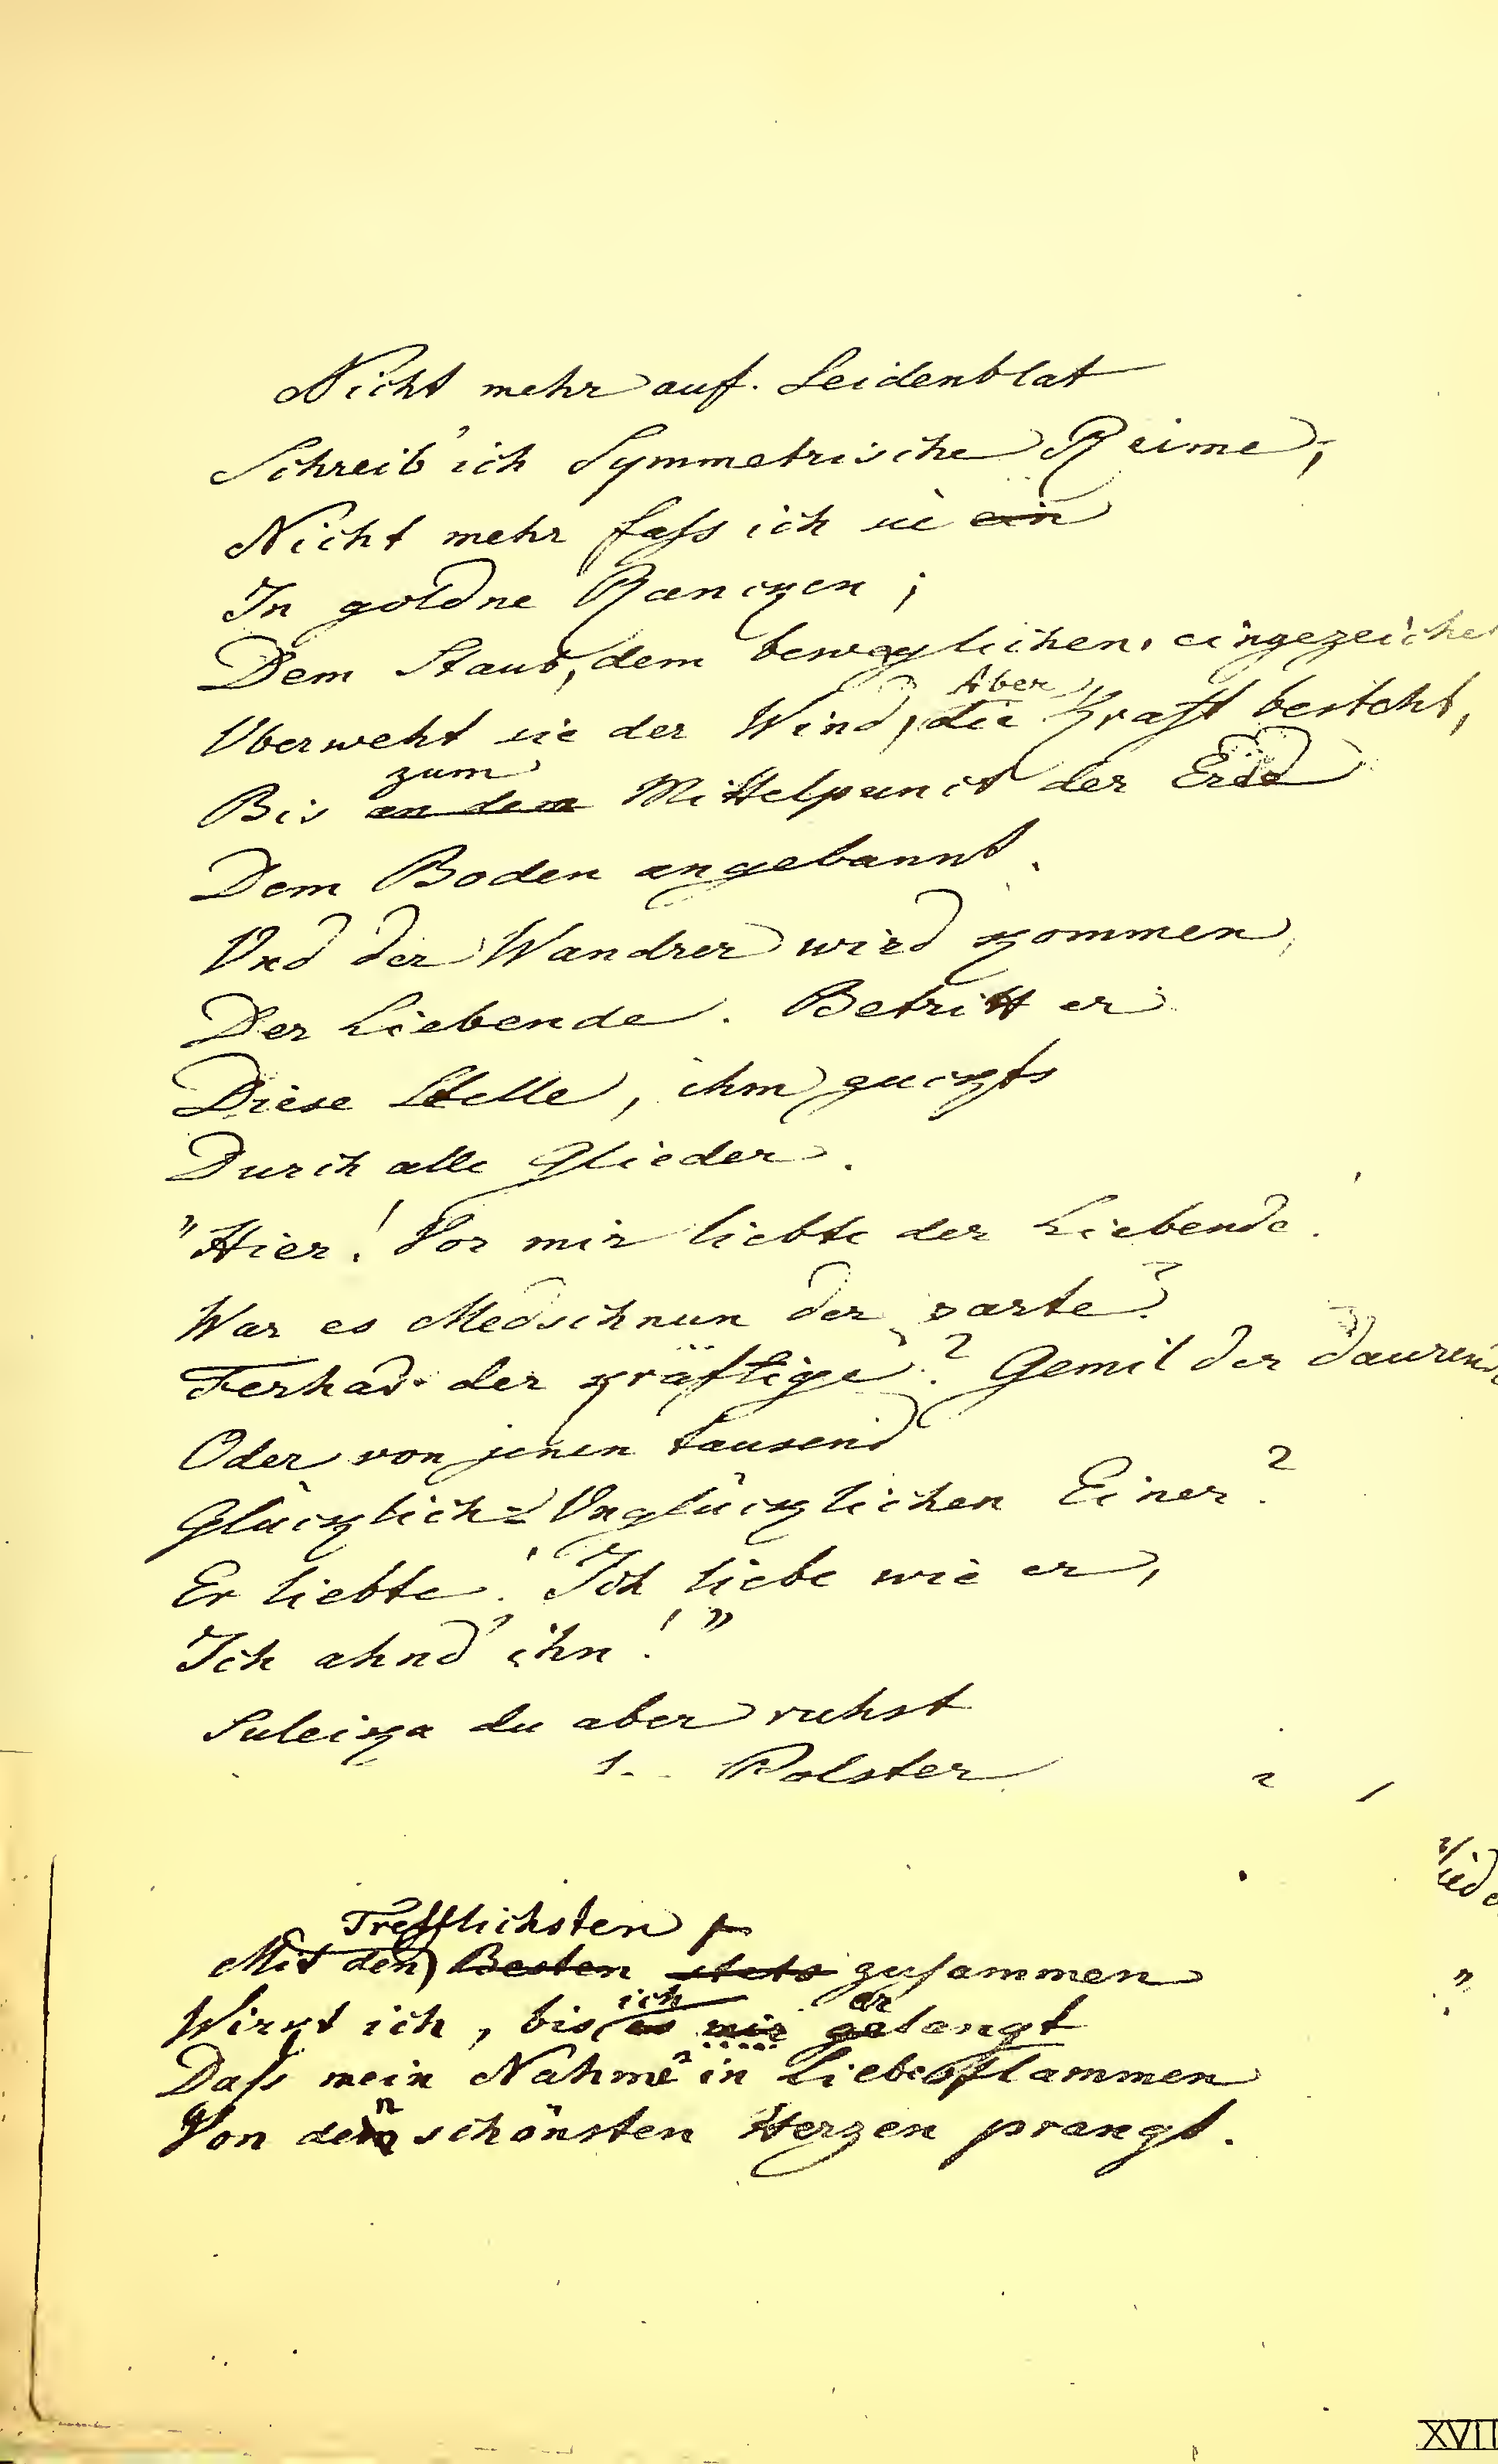 Nicht mehr auf Seidenblat
Schreib' ich Symmetrische Reime,
Nicht mehr faß ich sie ein
In goldne Rancken;
Dem Staub, dem beweglichen, eingezeichne
Aber
Uberweht sie der Wind, die Kraft besteht,
zum
Bis an den Mittelpunct der Erde
Dem Boden angebannt.
Und der Wandrer wird kommen,
Der Liebende. Betritt er
Diese Stelle, ihm zuckts
Durch alle Glieder.
"Hier! Vor mir liebte der Liebende.
War es Medschnun der zarte?
Ferhad der kräftige? Gemil der daurend
Oder von jenen tausend
Glücklich=Unglücklichen Einer?
Er liebte! Ich liebe wie er,
Ich ahnd' ihn!"
Suleika du aber ruhst
Polster
Trefflichsten
Mit den Besten stets zusammen
ich er
Wirckt ich, bis es mir gelangt
Daß mein Nahme in Liebesflammen
Von den schönsten Herzen prangt.
XVII